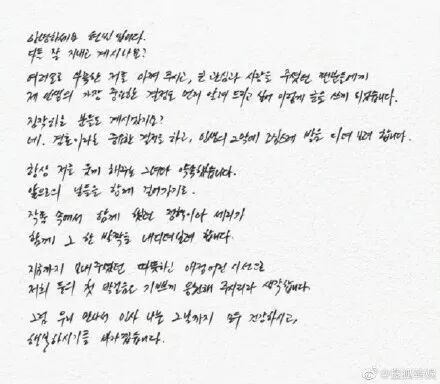 안녕하세요 현빈 입니다.
다들 잘 지내고 계시나요?
여러모로 부족한 저를 아껴 주시고, 큰 관심과 사랑을 주셨던 팬분들에게
제 인생의 가장 중요한 결정도 먼저 알려 드리고 싶어 이렇게 글을 쓰게 되었습니다.
짐작하실 분들도 계시겠지요?
네. 결혼이라는 중요한 결정을 하고, 인생의 2막에 조심스레 발을 디뎌 보려 합니다.
항상 저를 웃게 해주는 그녀와 약속했습니다.
앞으로의 날들을 함께 걸어가기로.
작품 속에서 함께 했던 정혁이와 세리가
함께 그 한 발짝을 내디뎌보려 합니다.
지금까지 보내주셨던 따뜻하고 애정어린 시선으로
저희 둘의 첫 발걸음도 기쁘게 응원해 주시리라 생각합니다.
그럼 우리 만나서 인사 나눌 그날까지 모두 건강하시고,
행복하시기를 바라겠습니다.
@搜狐韩娱